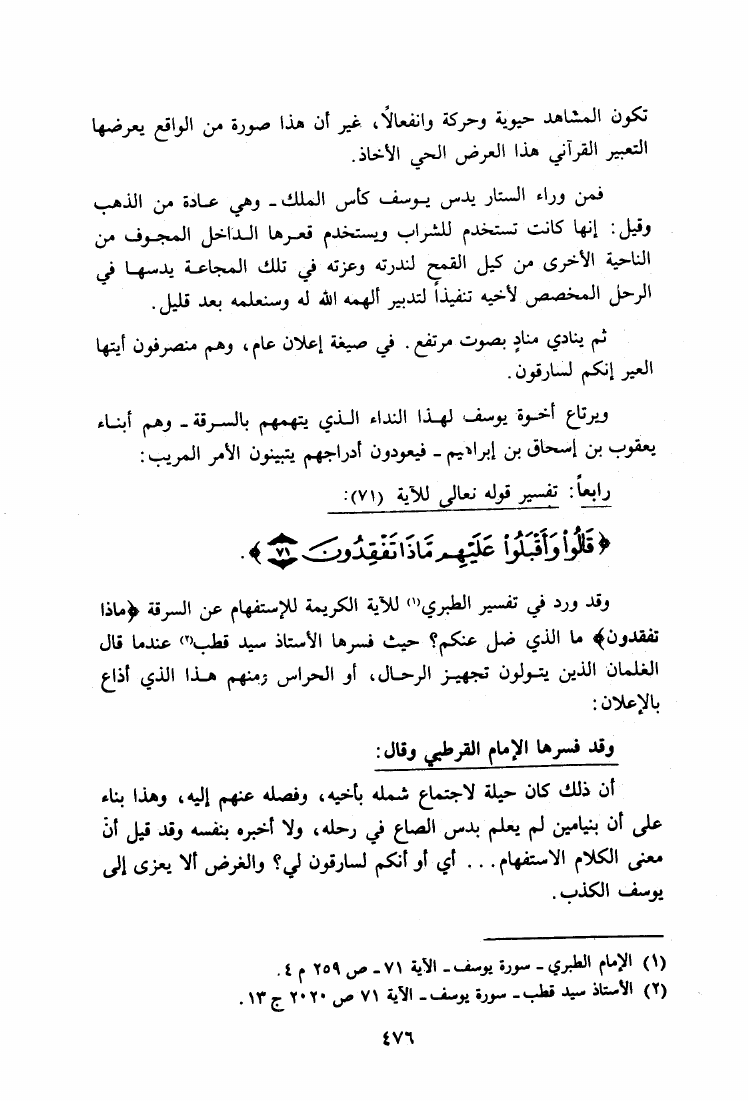 تكون المشاهد حيوية وحركة وانفعالاً، غير أن هذا صورة من الواقع يعرضها
التعبير القرآني هذا العرض الحي الأخاذ.
فمن وراء الستار يدس يوسف كأس الملك - وهي عادة من الذهب
وقيل: إنها كانت تستخدم للشراب ويستخدم قعرها الداخل المجوف من
الناحية الأخرى من كيل القمح لندرته وعزته في تلك المجاعة يدسها في
الرحل المخصص لأخيه تنفيذاً لتدبير ألهمه الله له وسنعلمه بعد قليل.
ثم ينادي منادٍ بصوت مرتفع. في صيغة إعلان عام، وهم منصرفون أيتها
العير إنكم لسارقون.
ويرتاع أخوة يوسف لهذا النداء الذي يتهمهم بالسرقة - وهم أبناء
يعقوب بن إسحاق بن إبراهيم - فيعودون أدراجهم يتبينون الأمر المريب:
رابعاً: تفسير قوله تعالى للآية (٧١):
﴿قَالُوا۟ وَأَقْبَلُوا۟ عَلَيْهِم مَّاذَا تَفْقِدُونَ ٧١﴾.
وقد ورد في تفسير الطبري(١) للآية الكريمة للإستفهام عن السرقة ﴿ماذا
تفقدون﴾ ما الذي ضل عنكم؟ حيث فسرها الأستاذ سيد قطب(٢) عندما قال
الغلمان الذين يتولون تجهيز الرحال، أو الحراس ومنهم هذا الذي أذاع
بالإعلان:
وقد فسرها الإمام القرطبي وقال:
أن ذلك كان حيلة لاجتماع شمله بأخيه، وفصله عنهم إليه، وهذا بناء
على أن بنيامين لم يعلم بدس الصاع في رحله، ولا أخبره بنفسه وقد قيل أنّ
معنى الكلام الاستفهام... أي أو أنكم لسارقون لي؟ والغرض ألا يعزى إلى
يوسف الكذب.
(١) الإمام الطبري - سورة يوسف - الآية ٧١ - ص ٢٥٩ م ٤.
(٢) الأستاذ سيد قطب - سورة يوسف - الآية ٧١ ص ٢٠٢٠ ج ١٣.
٤٧٦